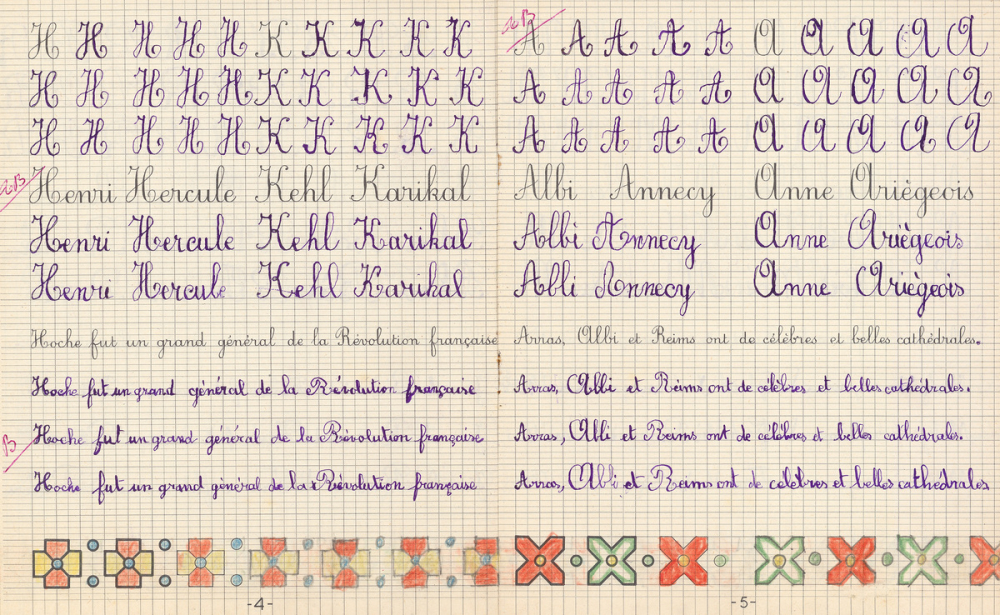 H H H H H K K K K K
H H H H H K K K K K
H H H H H K K K K K
Henri Hercule Kehl Karikal
Henri Hercule Kehl Karikal
Henri Hercule Kehl Karikal
Hoche fut un grand général de la Révolution française
Hoche fut un grand général de la Révolution française
B
Hoche fut un grand général de la Révolution française
Hoche fut un grand général de la Révolution française
-4-
A A A A A A A A A A
A A A A A A A A A A
A A A A A A A A A A
Albi Annecy Anne Ariègeois
Albi Annecy Anne Ariègeois
Albi Annecy Anne Ariègeois
Arras, Albi et Reims ont de célèbres et belles cathédrales.
Arras, Albi et Reims ont de célèbres et belles cathédrales.
Arras, Albi et Reims ont de célèbres et belles cathédrales.
Arras, Albi et Reims ont de célèbres et belles cathédrales
-5-